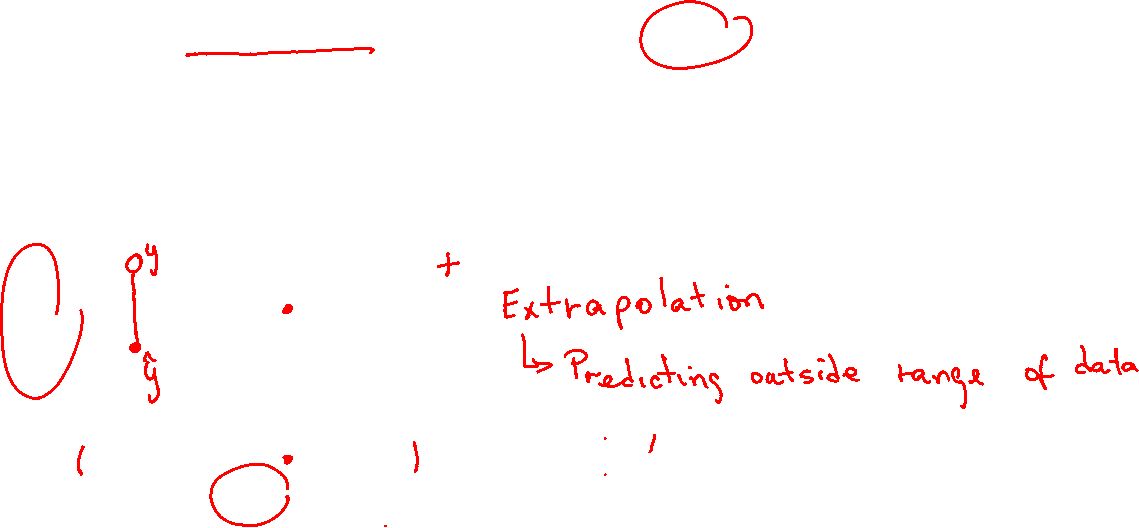 y
+
Extrapolation
↳ Predicting outside range of data
ŷ
( )